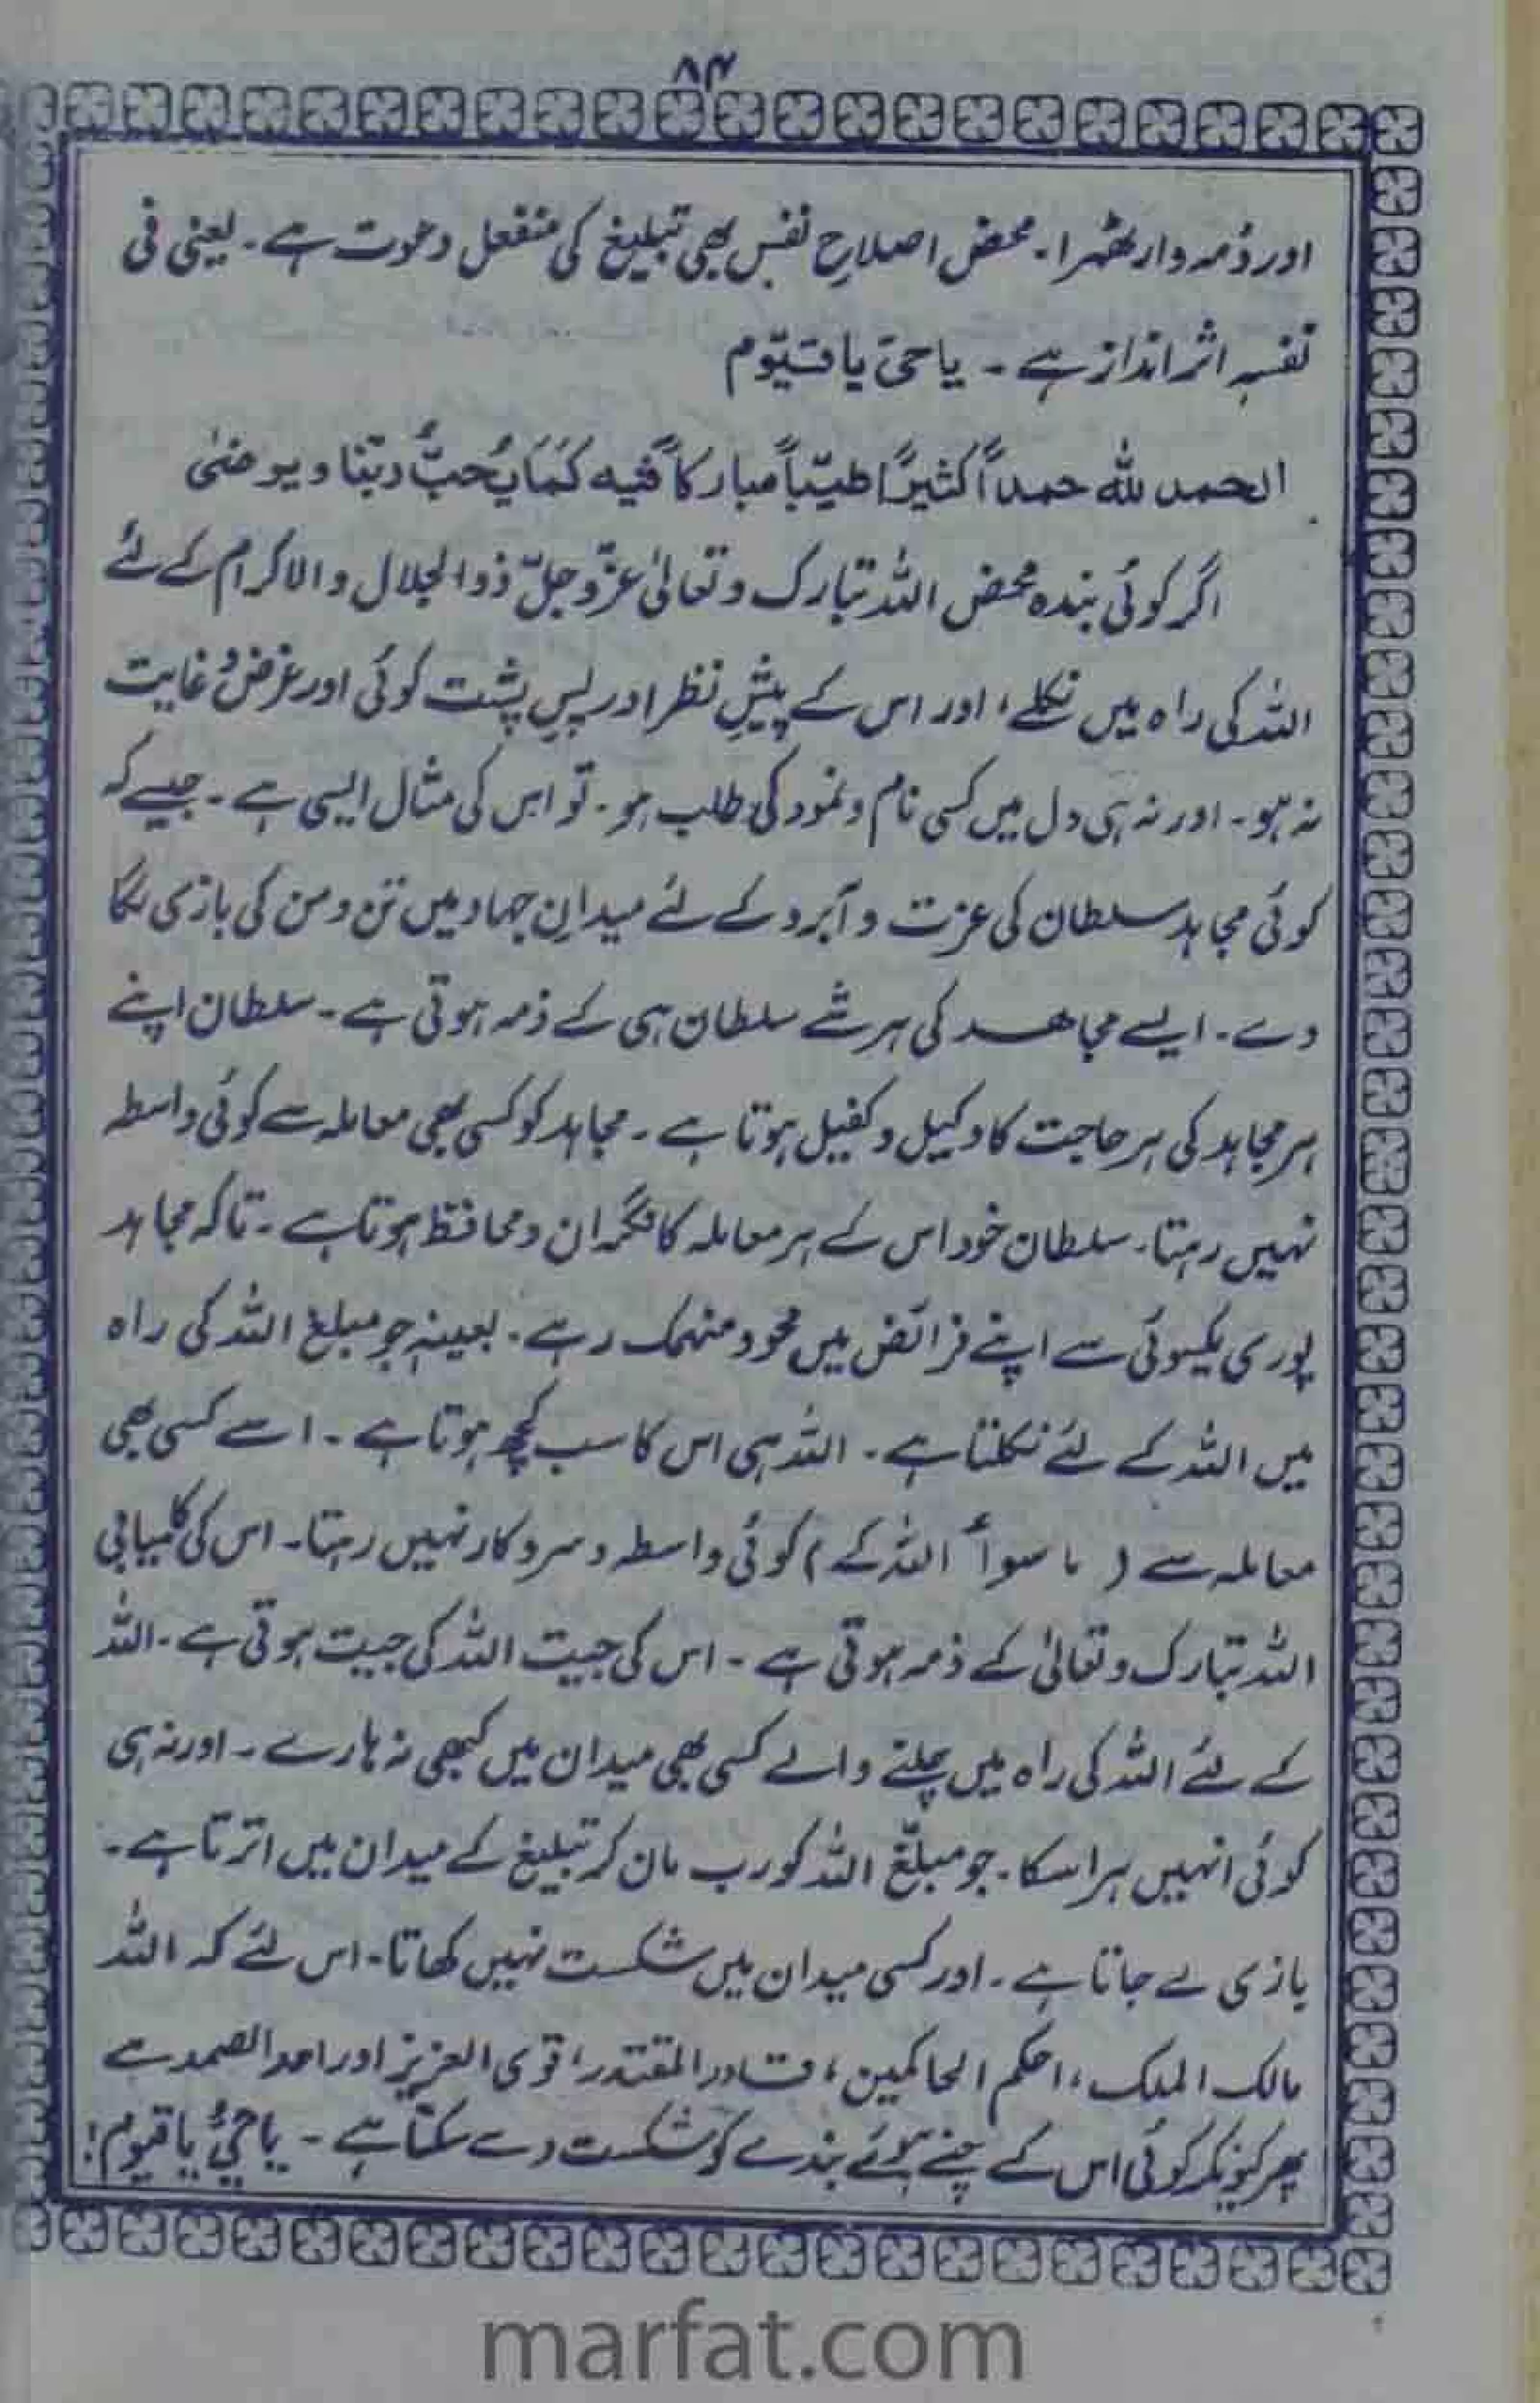 ۸۴
اور ذمہ دار ٹھہرا۔ محض اصلاحِ نفس بھی تبلیغ کی منفعل دعوت ہے۔ یعنی فی
نفسہٖ اثر انداز ہے ۔ یاحیّ یا قیّوم
الحمد للّٰہ حمداً کثیراً طیّباً مبارکاً فیہ کَمَا یُحبُّ ربّنا و یرضیٰ
اگر کوئی بندہ محض اللہ تبارک و تعالیٰ عزّوجلّ ذوالجلال والاکرام کے لئے
اللہ کی راہ میں نکلے، اور اس کے پیشِ نظر اور پسِ پشت کوئی اور غرض و غایت
نہ ہو۔ اور نہ ہی دل میں کسی نام و نمود کی طلب ہو۔ تو اس کی مثال ایسی ہے۔ جیسے کہ
کوئی مجاہد سلطان کی عزت و آبرو کے لئے میدانِ جہاد میں تن و من کی بازی لگا
دے۔ ایسے مجاھد کی ہر شے سلطان ہی کے ذمہ ہوتی ہے۔ سلطان اپنے
ہر مجاہد کی ہر حاجت کا وکیل و کفیل ہوتا ہے۔ مجاہد کو کسی بھی معاملہ سے کوئی واسطہ
نہیں رہتا۔ سلطان خود اس کے ہر معاملہ کا نگران و محافظ ہوتا ہے۔ تاکہ مجاہد
پوری یکسوئی سے اپنے فرائض میں محو و منہمک رہے۔ بعینہٖ جو مبلغ اللہ کی راہ
میں اللہ کے لئے نکلتا ہے۔ اللہ ہی اس کا سب کچھ ہوتا ہے۔ اسے کسی بھی
معاملہ سے ( ماسوأ اللہ کے ) کوئی واسطہ و سروکار نہیں رہتا۔ اس کی کامیابی
اللہ تبارک و تعالیٰ کے ذمہ ہوتی ہے ۔ اس کی جیت اللہ کی جیت ہوتی ہے۔ اللہ
کے لئے اللہ کی راہ میں چلنے والے کسی بھی میدان میں کبھی نہ ہارے ۔ اور نہ ہی
کوئی انہیں ہرا سکا۔ جو مبلّغ اللہ کو رب مان کر تبلیغ کے میدان میں اترتا ہے۔
بازی لے جاتا ہے۔ اور کسی میدان میں شکست نہیں کھاتا۔ اس لئے کہ اللہ
مالک الملک، احکم الحاکمین، قادر المقتدر، قوی العزیز اور احد الصمد ہے
پھر کیونکر کوئی اس کے چنے ہوئے بندے کو شکست دے سکتا ہے ۔ یا حیُّ یا قیوم!
marfat.com